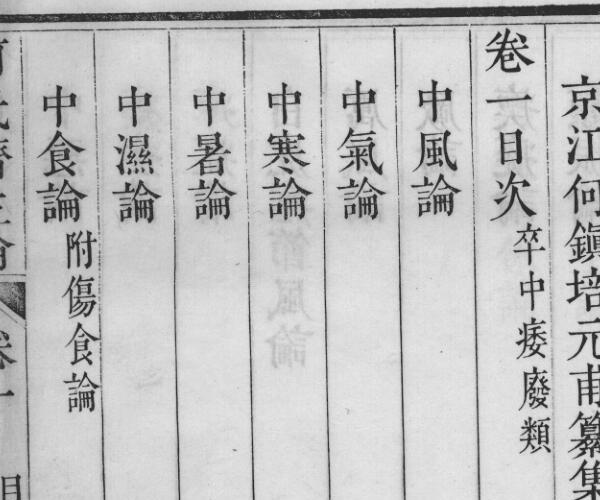 京江何鎮培元甫纂集
卷一目次 卒中痿廢類
中風論
中氣論
中寒論
中暑論
中濕論
中食論 附傷食論
何氏濟生論 卷一 目